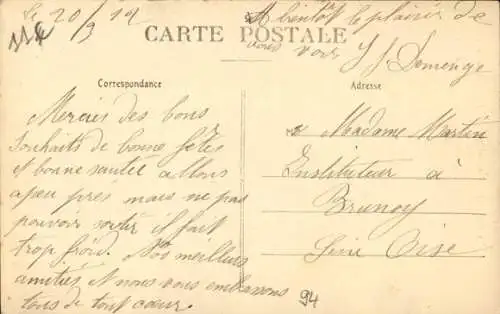 le 20/3 19
A bientôt le plaisir de
vous voir
J J. Demenge
CARTE POSTALE
Correspondance
Adresse
Mercies des bons
Souhaits de bonne fêtes
et bonne santée allons
apeu près mais ne pas
pouvoir sortir il fait
trop froid. Nos meilleurs
amitiés et nous vous embrassons
tous de tout cœur
Madame Martin
Instituteur à
Brunoy
Seine Oise
94